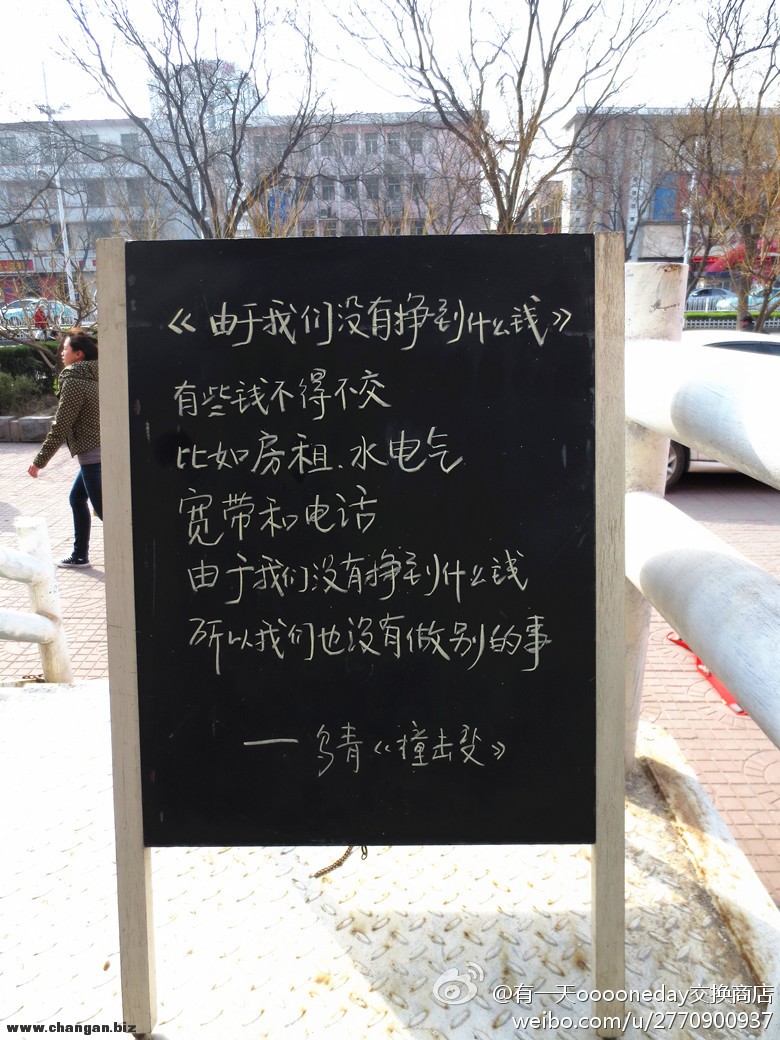 《由于我们没有挣到什么钱》
有些钱不得不交
比如房租、水电气
宽带和电话
由于我们没有挣到什么钱
所以我们也没有做别的事
——乌青《撞击受》
www.changan.biz
@有一天ooooneday交换商店
weibo.com/u/2770900937